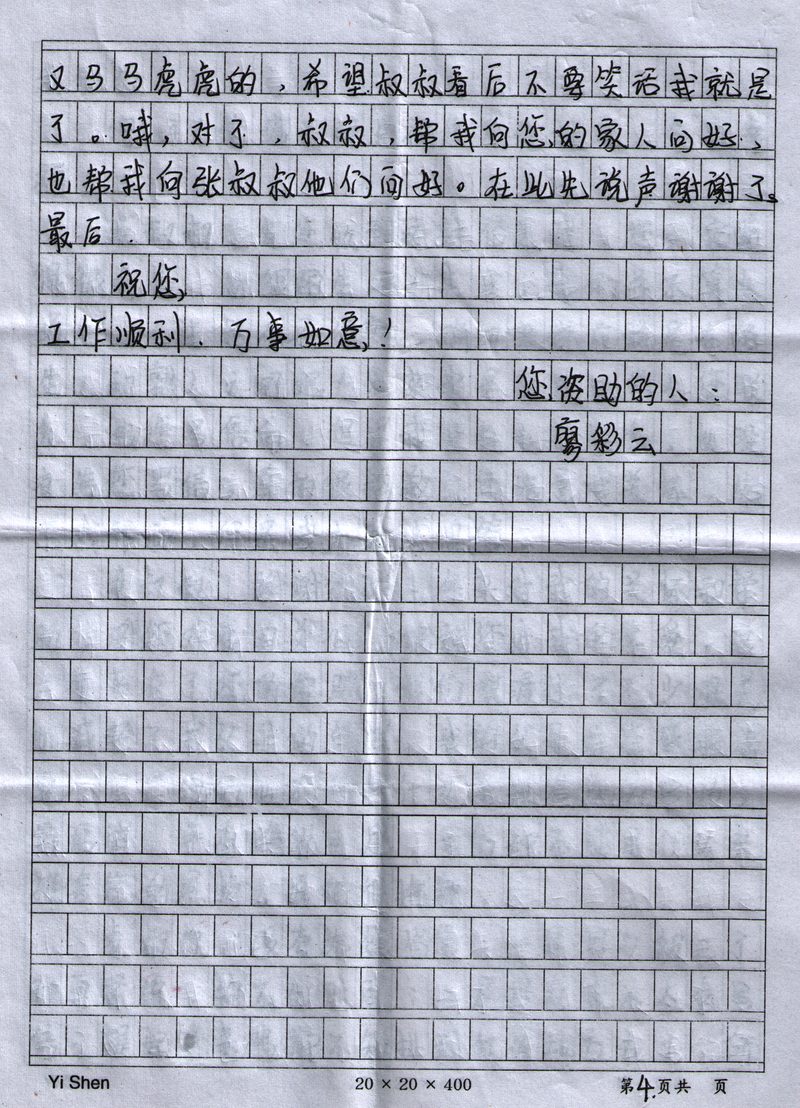 又马马虎虎的，希望叔叔看后不要笑话我就是
了。哦，对了，叔叔，帮我向您的家人问好，
也帮我向张叔叔他们问好。在此先说声谢谢了。
最后．
祝您
工作顺利．万事如意！
您资助的人：
彩云
Yi Shen
20 × 20 × 400
第4.页共 页